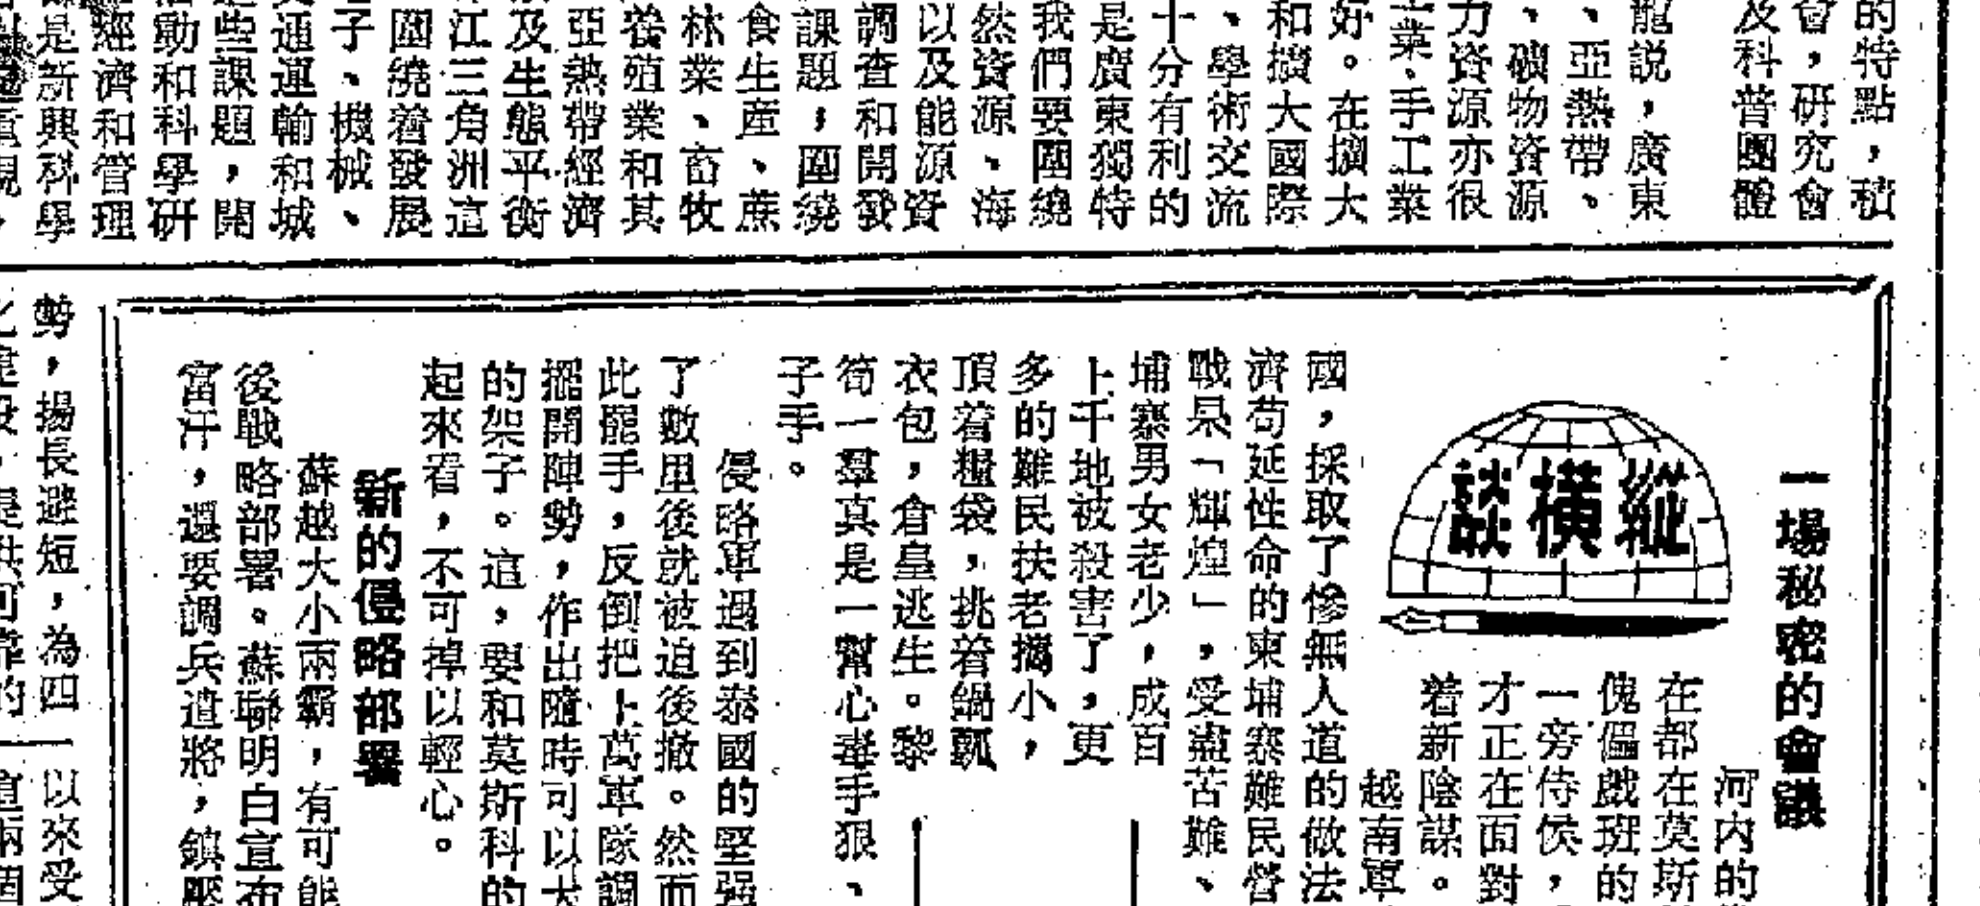 的特點，積
會，研究會
及科普團體
龍説，廣東
、亞熱帶、
、礦物資源
力資源亦很
業、手工業
好。在擴大
和擴大國際
、學術交流
十分有利的
是廣東獨特
我們要圍繞
然資源、海
以及能源資
調查和開發
課題，圍繞
食生産、蔗
林業、畜牧
養殖業和其
亞熱帶經濟
及生態平衡
江三角洲這
圍繞着發展
子、機械、
通運輸和城
些課題，開
動和科學研
經濟和管理
是新興科學
一場秘密的會議
縱橫談
河内的
在都在莫斯
傀儡戲班的
一旁侍侯，
才正在面對
着新陰謀。
越南軍
國，採取了慘無人道的做法
濟苟延性命的柬埔寨難民營
戰果「輝煌」，受盡苦難、
埔寨男女老少，成百
上千地被殺害了，更
多的難民扶老攜小，
頂着糧袋，挑着鍋瓢
衣包，倉皇逃生。黎
筍一羣真是一幫心毒手狠、
子手。
侵略軍遇到泰國的堅强
了數里後就被迫後撤。然而
此罷手，反倒把上萬軍隊調
擺開陣勢，作出隨時可以大
的架子。這，要和莫斯科的
起來看，不可掉以輕心。
新的侵略部署
蘇越大小兩霸，有可能
後戰略部署。蘇聯明白宣布
富汗，還要調兵遣將，鎮壓
勢，揚長避短，為四
以來受